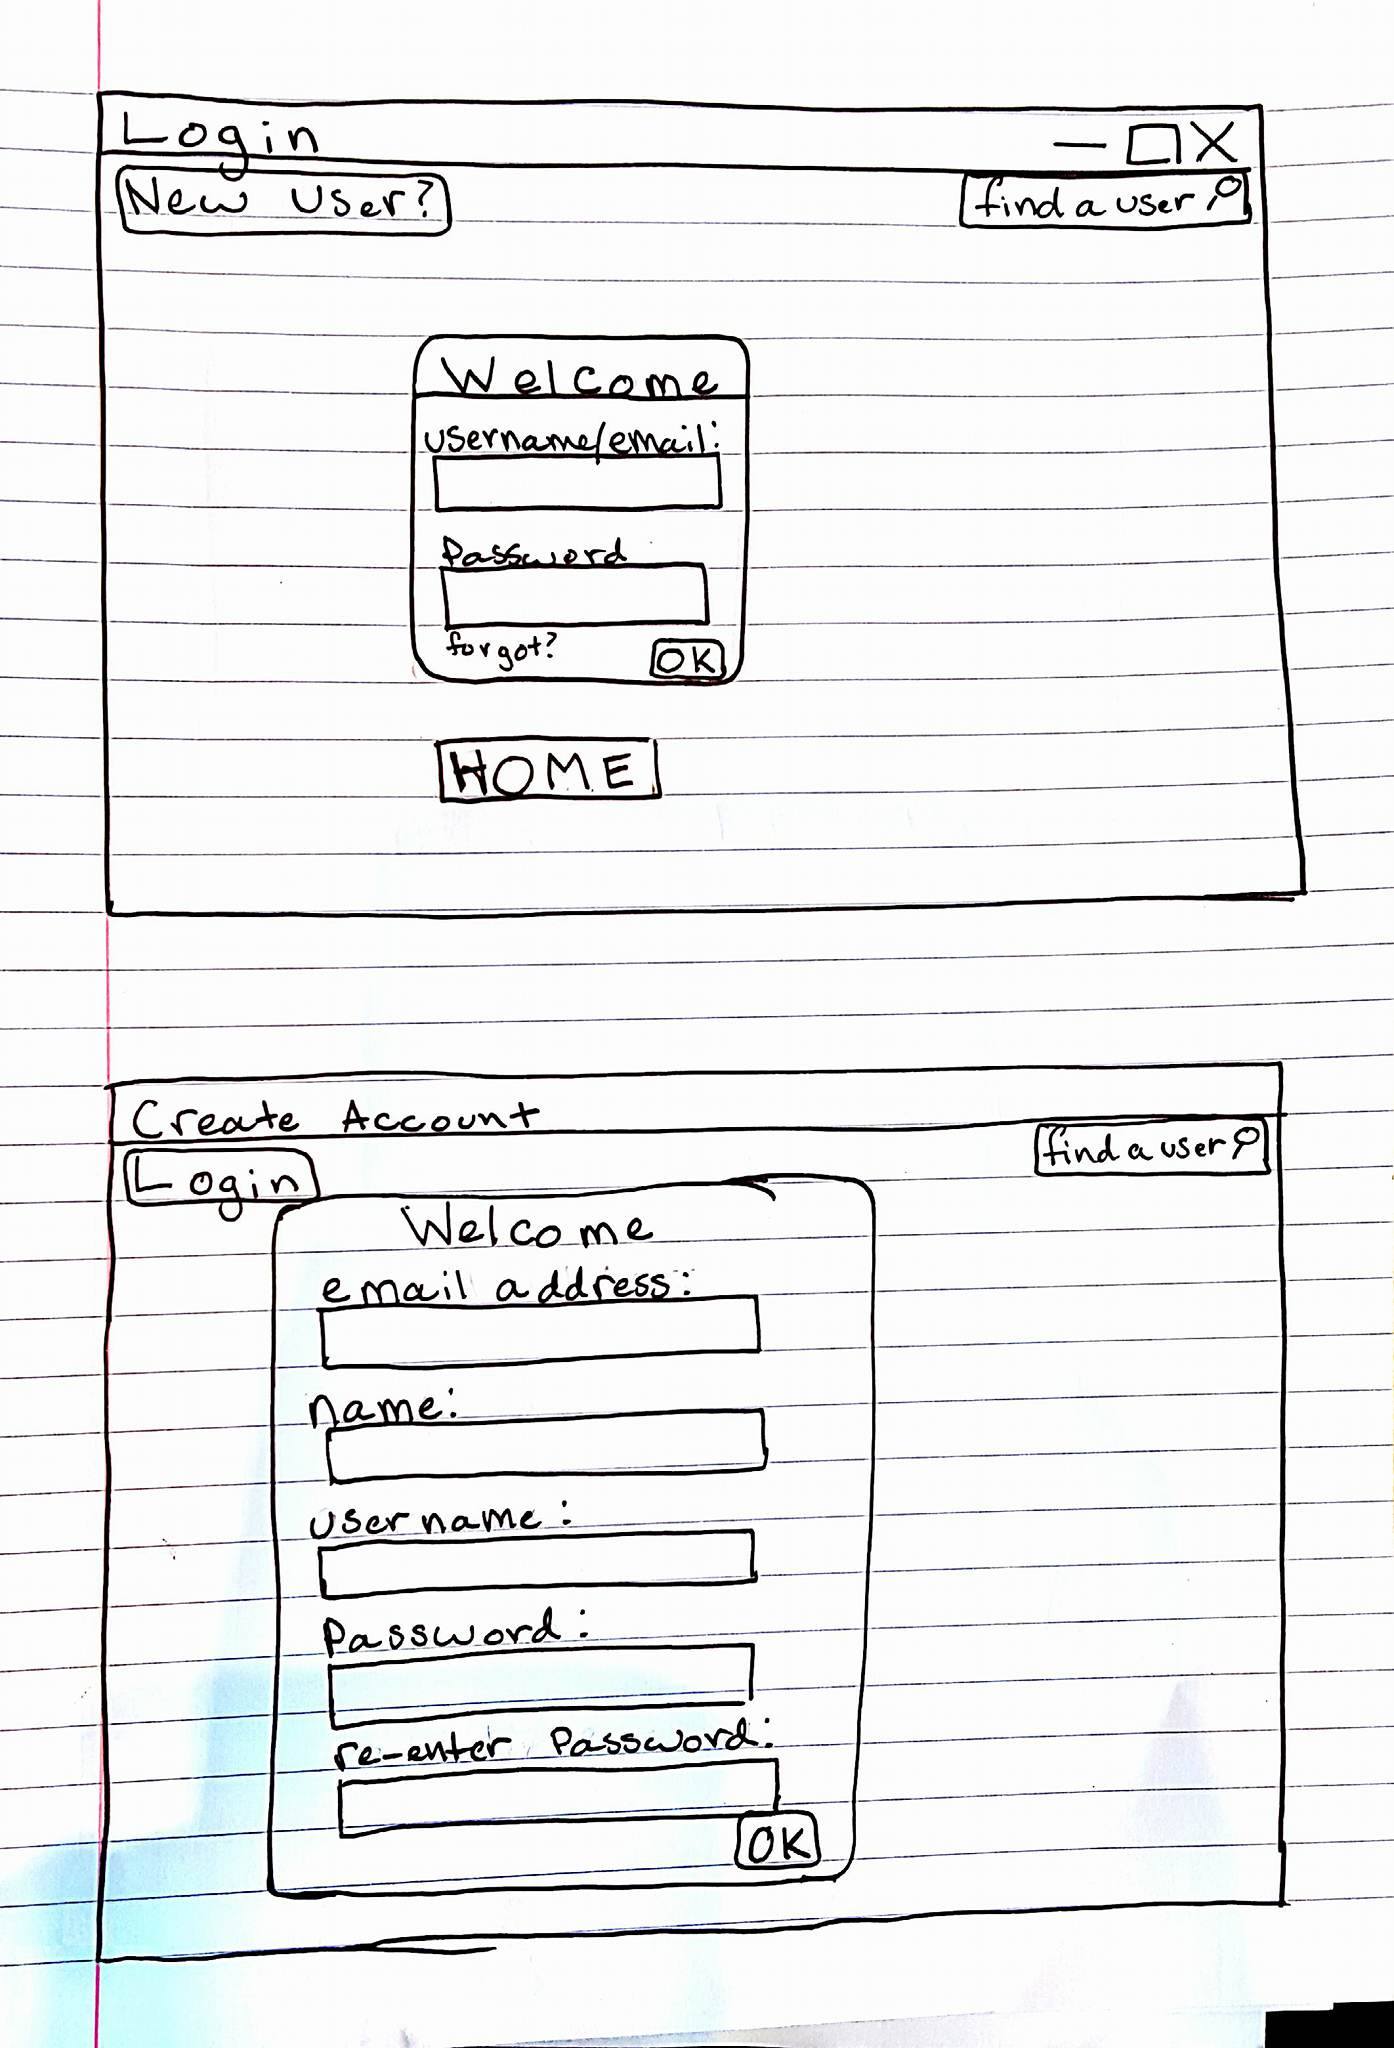 Login
New User?
find a user
Welcome
username/email:
Password
forgot?
OK
HOME
Create Account
Login
find a user
Welcome
email address:
name:
username:
Password:
re-enter Password:
OK